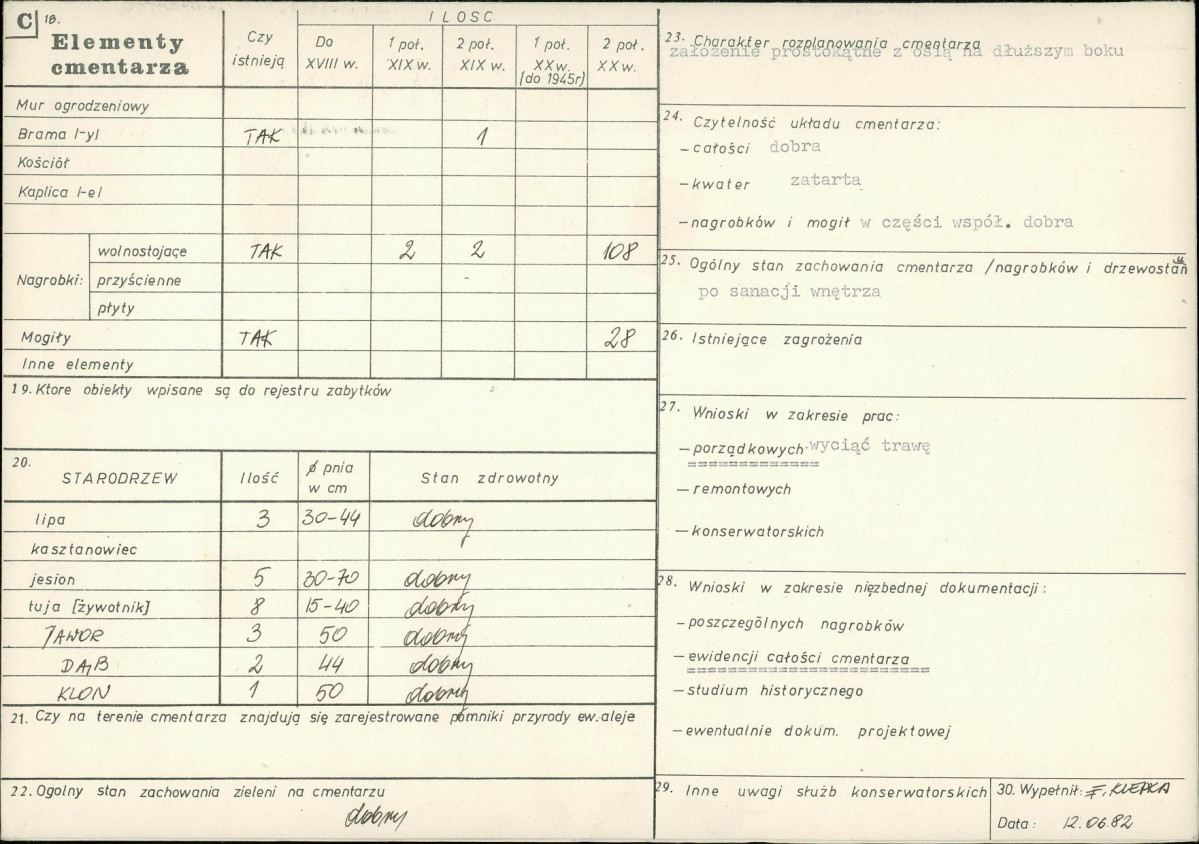 C 18. Elementy cmentarza
Czy istnieją
ILOSC
Do XVIII w.
1 poł. XIX w.
2 poł. XIX w.
1 poł. XX w. (do 1945r)
2 poł. XX w.
Mur ogrodzeniowy
Brama I-yI TAK 1
Kościół
Kaplica I-eI
Nagrobki:
wolnostojące TAK 2 2 108
przyścienne
płyty
Mogiły TAK 28
Inne elementy
19. Ktore obiekty wpisane są do rejestru zabytków
20. STARODRZEW Ilość ϕ pnia w cm Stan zdrowotny
lipa 3 30-44 dobry
kasztanowiec
jesion 5 30-70 dobry
tuja [żywotnik] 8 15-40 dobry
JAWOR 3 50 dobry
DĄB 2 44 dobry
KLON 1 50 dobry
21. Czy na terenie cmentarza znajdują się zarejestrowane pomniki przyrody ew. aleje
22. Ogolny stan zachowania zieleni na cmentarzu
dobry
23. Charakter rozplanowania cmentarza
założenie prostokątne z osią na dłuższym boku
24. Czytelność układu cmentarza:
- całości dobra
- kwater zatarta
- nagrobków i mogił w części współ. dobra
25. Ogólny stan zachowania cmentarza /nagrobków i drzewostanu
po sanacji wnętrza
26. Istniejące zagrożenia
27. Wnioski w zakresie prac:
- porządkowych wyciąć trawę
- remontowych
- konserwatorskich
28. Wnioski w zakresie niezbednej dokumentacji:
- poszczególnych nagrobków
- ewidencji całości cmentarza
- studium historycznego
- ewentualnie dokum. projektowej
29. Inne uwagi służb konserwatorskich
30. Wypełnił: F. KLEPKA
Data: 12.06.82